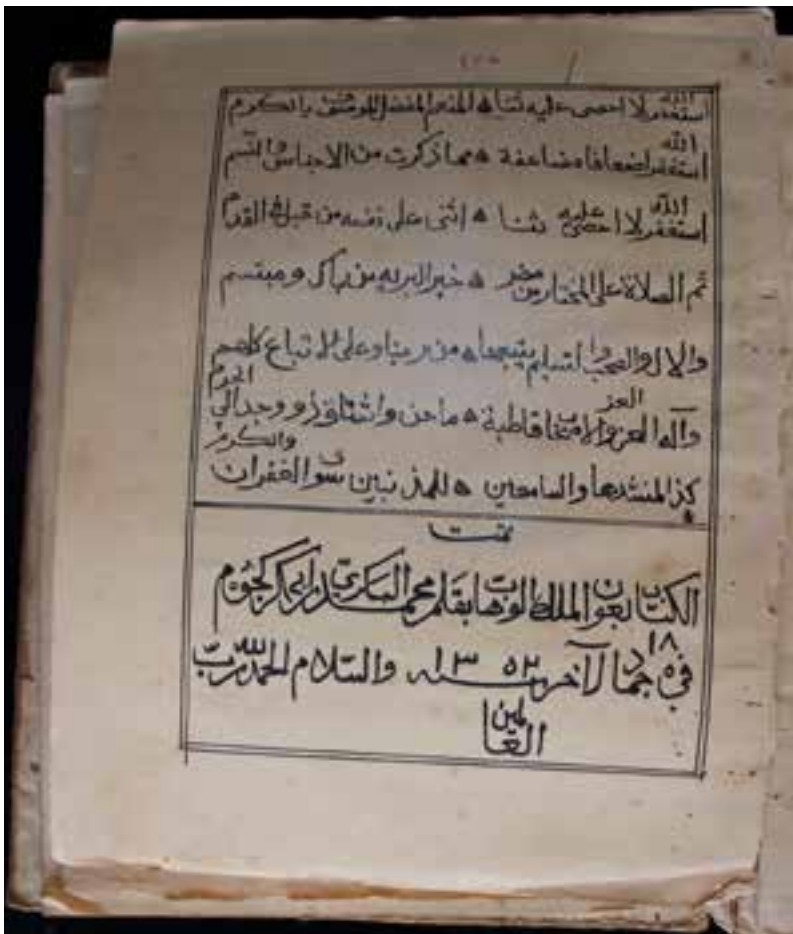 استغفر الله لا احصى عليه ثنا ه المنعم المفضل بالكرم
استغفر الله اضعافا مضاعفة ه مما ذكرت من الاجناس والنسم
استغفر الله لا احصى عليه ثنا ه اثنى على نفسه من قبل فى القدم
ثم الصلاة على المختار من مضر ه خير البريه من باك ومبتسم
والال والصحب والتسليم يتبعها ه من ربنا وعلى الاتباع كلهم
ه ما حن واشتاق ذو وجد الى الحرم
كذا لمنشدها والسامعين ه للمذنبين سوى الغفران والكرم
تمت
الكتاب بعون الملك الوهاب بقلم محمد البكرى بن ابى بكر
فى ١٨ جماد الآخر سنه ١٣٥٢ والسلام الحمد لله رب
العالمين